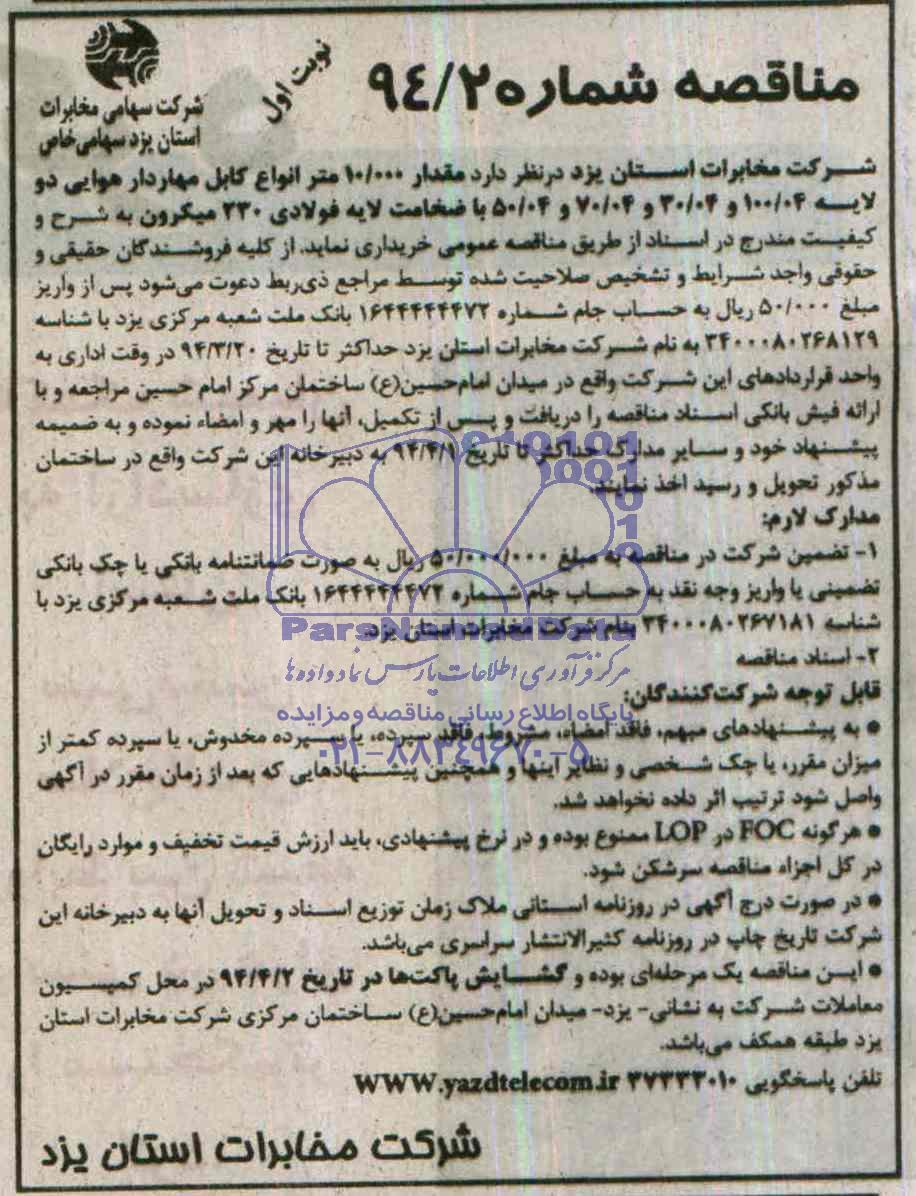 مناقصه شماره ۹۴/۲
نوبت اول
شرکت سهامی مخابرات
استان یزد سهامی خاص
شرکت مخابرات استان یزد درنظر دارد مقدار ۱۰/۰۰۰ متر انواع کابل مهاردار هوایی دو
لایه ۱۰۰/۰۴ و ۳۰/۰۴ و ۷۰/۰۴ و ۵۰/۰۴ با ضخامت لایه فولادی ۲۳۰ میکرون به شرح و
کیفیت مندرج در اسناد از طریق مناقصه عمومی خریداری نماید. از کلیه فروشندگان حقیقی و
حقوقی واجد شرایط و تشخیص صلاحیت شده توسط مراجع ذی‌ربط دعوت می‌شود پس از واریز
مبلغ ۵۰/۰۰۰ ریال به حساب جام شماره ۱۶۴۴۴۴۴۴۷۲ بانک ملت شعبه مرکزی یزد با شناسه
۳۴۰۰۰۸۰۲۶۸۱۲۹ به نام شرکت مخابرات استان یزد حداکثر تا تاریخ ۹۴/۳/۲۰ در وقت اداری به
واحد قراردادهای این شرکت واقع در میدان امام‌حسین(ع) ساختمان مرکز امام حسین مراجعه و با
ارائه فیش بانکی اسناد مناقصه را دریافت و پس از تکمیل، آنها را مهر و امضاء نموده و به ضمیمه
پیشنهاد خود و سایر مدارک حداکثر تا تاریخ ۹۴/۴/۱ به دبیرخانه این شرکت واقع در ساختمان
مذکور تحویل و رسید اخذ نمایند.
مدارک لازم:
۱- تضمین شرکت در مناقصه به مبلغ ۵۰/۰۰۰/۰۰۰ ریال به صورت ضمانتنامه بانکی یا چک بانکی
تضمینی یا واریز وجه نقد به حساب جام شماره ۱۶۴۴۴۴۴۴۷۲ بانک ملت شعبه مرکزی یزد با
شناسه ۳۴۰۰۰۸۰۲۶۷۱۸۱ بنام شرکت مخابرات استان یزد.
ParsNamadData
۲- اسناد مناقصه
مرکز فرآوری اطلاعات پارس نماد داده‌ها
قابل توجه شرکت‌کنندگان:
پایگاه اطلاع رسانی مناقصه و مزایده
● به پیشنهادهای مبهم، فاقد امضاء، مشروط، فاقد سپرده، یا سپرده مخدوش، یا سپرده کمتر از
۰۲۱-۸۸۳۴۹۶۷۰-۵
میزان مقرر، یا چک شخصی و نظایر اینها و همچنین پیشنهادهایی که بعد از زمان مقرر در آگهی
واصل شود ترتیب اثر داده نخواهد شد.
● هرگونه FOC در LOP ممنوع بوده و در نرخ پیشنهادی، باید ارزش قیمت تخفیف و موارد رایگان
در کل اجزاء مناقصه سرشکن شود.
● در صورت درج آگهی در روزنامه استانی ملاک زمان توزیع اسناد و تحویل آنها به دبیرخانه این
شرکت تاریخ چاپ در روزنامه کثیرالانتشار سراسری می‌باشد.
● این مناقصه یک مرحله‌ای بوده و گشایش پاکت‌ها در تاریخ ۹۴/۴/۲ در محل کمیسیون
معاملات شرکت به نشانی- یزد- میدان امام‌حسین(ع) ساختمان مرکزی شرکت مخابرات استان
یزد طبقه همکف می‌باشد.
تلفن پاسخگویی ۳۷۲۳۳۰۱۰ WWW.yazdtelecom.ir
شرکت مخابرات استان یزد